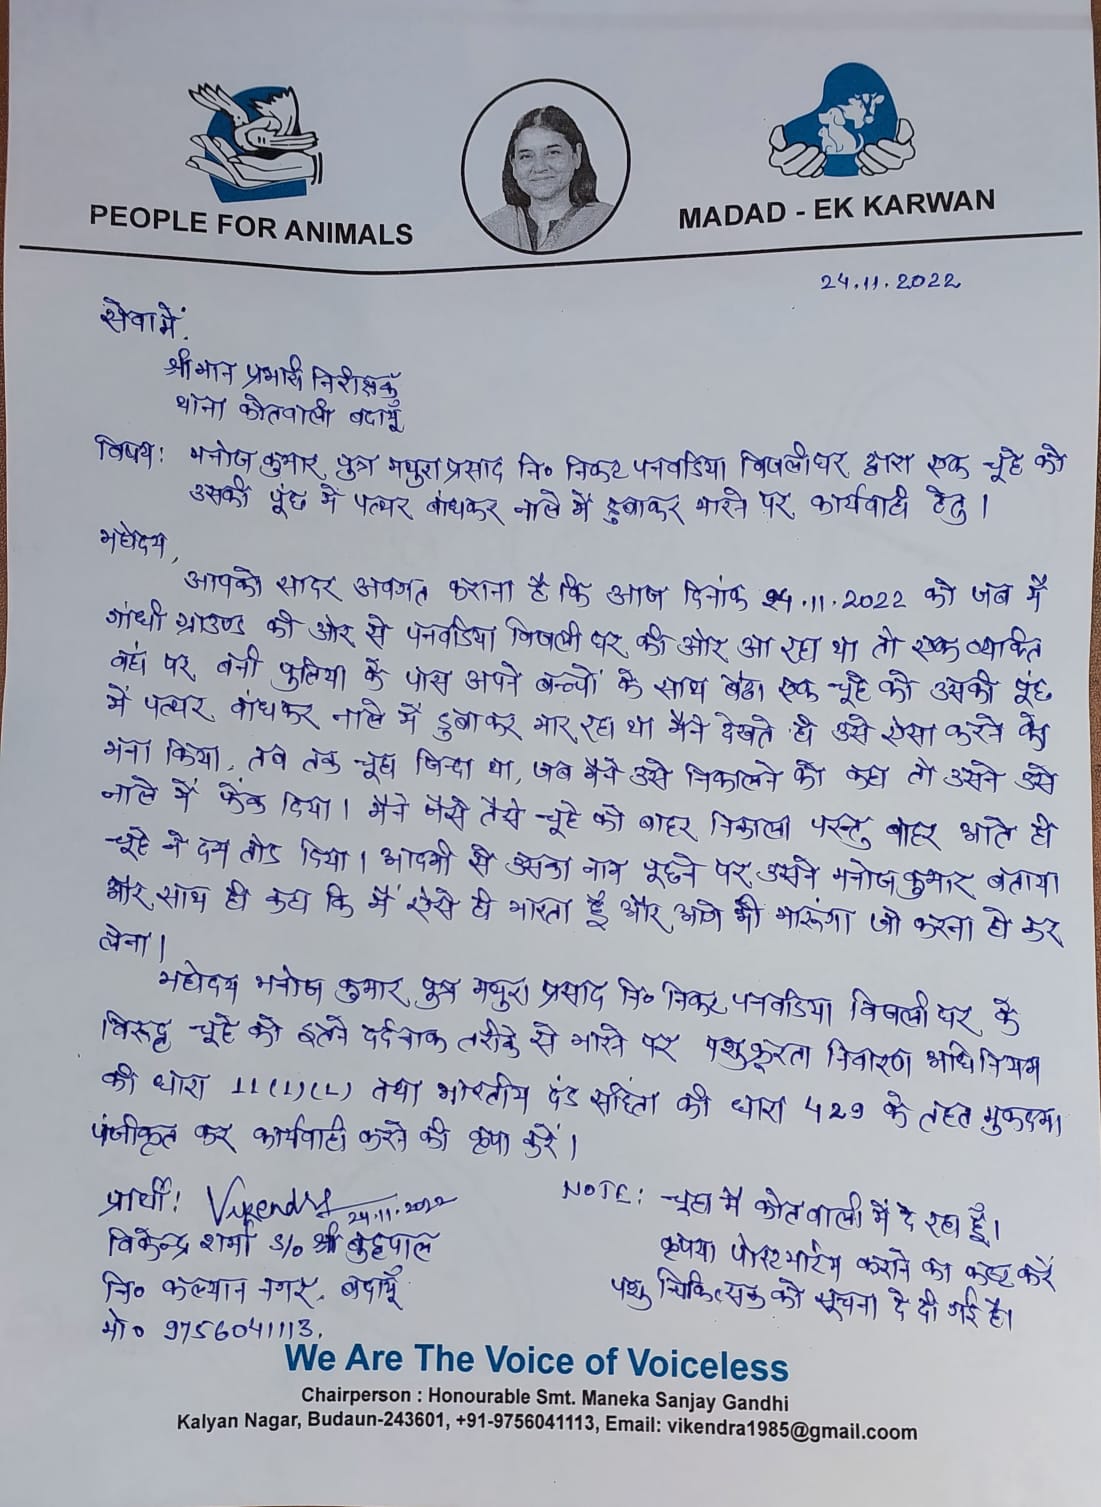 PEOPLE FOR ANIMALS
MADAD - EK KARWAN
24.11.2022
सेवा में,
श्रीमान प्रभारी निरीक्षक
थाना कोतवाली बदायूँ
विषय: मनोज कुमार पुत्र मथुरा प्रसाद नि० निकट पनवडिया बिजलीघर द्वारा एक चूहे को
उसकी पूंछ में पत्थर बांधकर नाले में डुबाकर मारने पर कार्यवाही हेतु।
महोदय,
आपको सादर अवगत कराना है कि आज दिनांक 24.11.2022 को जब मैं
गांधी ग्राउण्ड की ओर से पनवडिया बिजली घर की ओर आ रहा था तो एक व्यक्ति
वहां पर बनी पुलिया के पास अपने बच्चों के साथ बैठा एक चूहे को उसकी पूंछ
में पत्थर बांधकर नाले में डुबाकर मार रहा था मैंने देखते ही उसे ऐसा करने को
मना किया, तब तक चूहा जिन्दा था, जब मैंने उसे निकालने को कहा तो उसने उसे
नाले में फेंक दिया। मैंने जैसे तैसे चूहे को बाहर निकाला परन्तु बाहर आते ही
चूहे ने दम तोड दिया। आदमी से उसका नाम पूछने पर उसने मनोज कुमार बताया
और साथ ही कहा कि मैं ऐसे ही मारता हूँ और आगे भी मारूंगा जो करना हो कर
लेना।
महोदय मनोज कुमार पुत्र मथुरा प्रसाद नि० निकट पनवडिया बिजली घर के
विरूद्ध चूहे को इतने दर्दनाक तरीके से मारने पर पशु क्रूरता निवारण अधिनियम
की धारा 11(1)(L) तथा भारतीय दंड संहिता की धारा 429 के तहत मुकदमा
पंजीकृत कर कार्यवाही करने की कृपा करें।
प्रार्थी: Vikendra 24.11.2022
विकेन्द्र शर्मा S/० श्री
नि० कल्यान नगर, बदायूँ
मो० 9756041113,
NOTE: चूहा मैं कोतवाली में दे रहा हूँ।
कृपया पोस्टमार्टम कराने का कष्ट करें
पशु चिकित्सक को सूचना दे दी गई है।
We Are The Voice of Voiceless
Chairperson : Honourable Smt. Maneka Sanjay Gandhi
Kalyan Nagar, Budaun-243601, +91-9756041113, Email: vikendra1985@gmail.coom